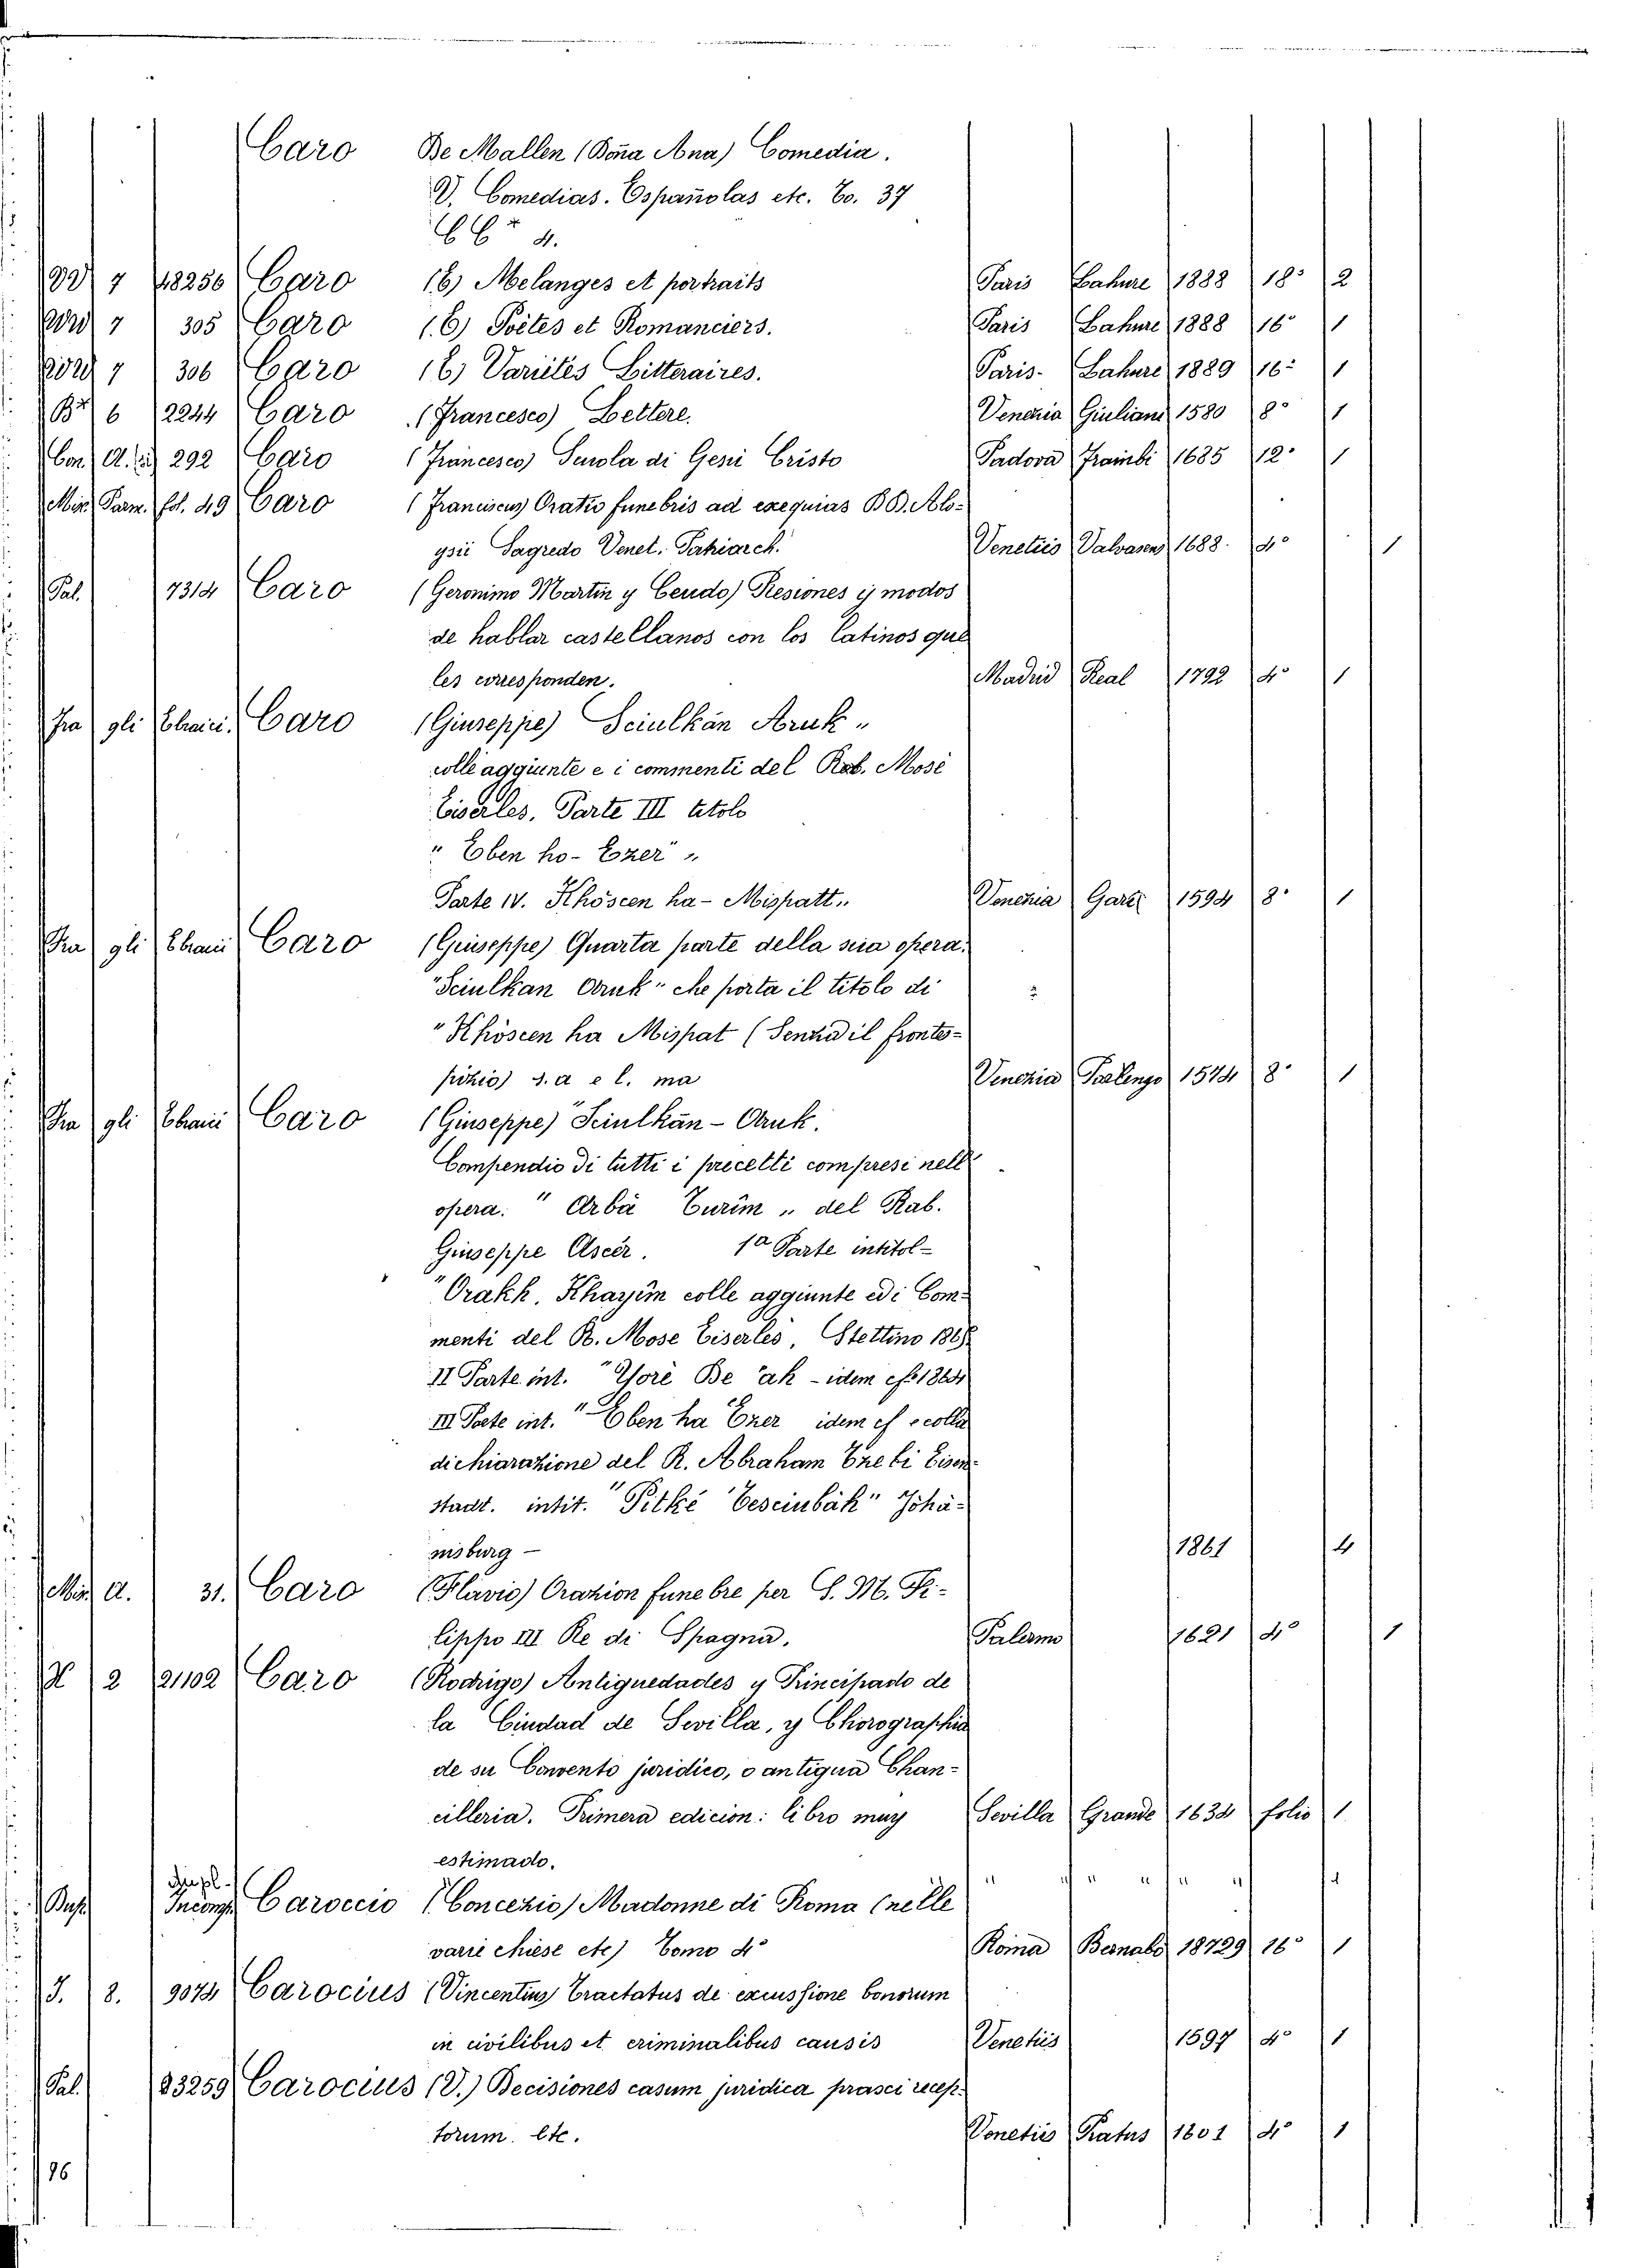 Caro De Mallen (Dona Ana) Comedia.
V. Comedias. Españolas etc. To. 37
CC* 4.
7 18256 Caro (E) Melanges et portraits Paris Lahure 1888 18° 2
7 305 Caro (E) Poètes et Romanciers. Paris Lahure 1888 16° 1
7 306 Caro (E) Variétés Litteraires. Paris- Lahure 1889 16° 1
B* 6 2244 Caro (Francesco) Lettere. Venezia Giuliani 1580 8° 1
Con. A. 292 Caro (Francesco) Scuola di Gesù Cristo Padova Frambi 1685 12° 1
Mis. Parm. fol. 49 Caro (Franciscus) Oratio funebris ad exequias B.D. Alo-
ysii Sagredo Venet. Patriarch. Venetiis Valvasens 1688. 4° 1
Pal. 7314 Caro (Geronimo Martin y Cendo) Resiones y modos
de hablar castellanos con los latinos que
les corresponden. Madrid Real 1792 4° 1
Fra gli Ebraici. Caro (Giuseppe) Sciulkàn Aruk "
colle aggiunte e i commenti del Rab. Mosè
Eiserles. Parte III titolo
" Eben ho-Ezer "
Parte IV. Khòscen ha-Mispatt " Venezia Garti 1594 8° 1
Fra gli Ebraici Caro (Giuseppe) Quarta parte della sua opera.
"Sciulkan Aruk" che porta il titolo di
"Khòscen ha Mispat (Senza il frontes-
pizio) s. a e l. ma Venezia 1574 8° 1
Fra gli Ebraici Caro (Giuseppe) "Sciulkan-Aruk.
Compendio di tutti i precetti compresi nell
opera. " Arba Turim " del Rab.
Giuseppe Ascèr. 1a Parte intitol-
"Orakh. Khayim colle aggiunte ed i Com-
menti del R. Mose Eiserles, Stettino 186
II Parte int. "Yorè De 'ah - idem ef. 1864
III Parte int. "Eben ha Ezer idem ef e colla
dichiarazione del R. Abraham Eisen-
stadt. intit. "Pitkè Tesciubàh" Johà-
nisburg - 1861 4
Mis. A. 31. Caro (Flavio) Orazion funebre per S. M. Fi-
lippo III Re di Spagna. Palermo 1621 4° 1
X 2 21102 Caro (Rodrigo) Antiguedades y Principado de
la Ciudad de Sevilla, y Chorographia
de su Convento juridico, o antigua Chan-
cilleria. Primera edicion: libro muy Sevilla Grande 1634 folio 1
estimado.
Dupl. " " " " " "
Busf Incomp. Caroccio (Concezio) Madonne di Roma (nelle
varie chiese etc) Tomo 4° Roma Bernabò 18729 16° 1
J. 8. 9074 Carocius (Vincentius) Tractatus de excussione bonorum
in civilibus et criminalibus causis Venetiis 1597 4° 1
Pal. 23259 Carocius (V.) Decisiones casum juridica prasci recep-
torum. etc. Venetiis Ratus 1601 4° 1
96